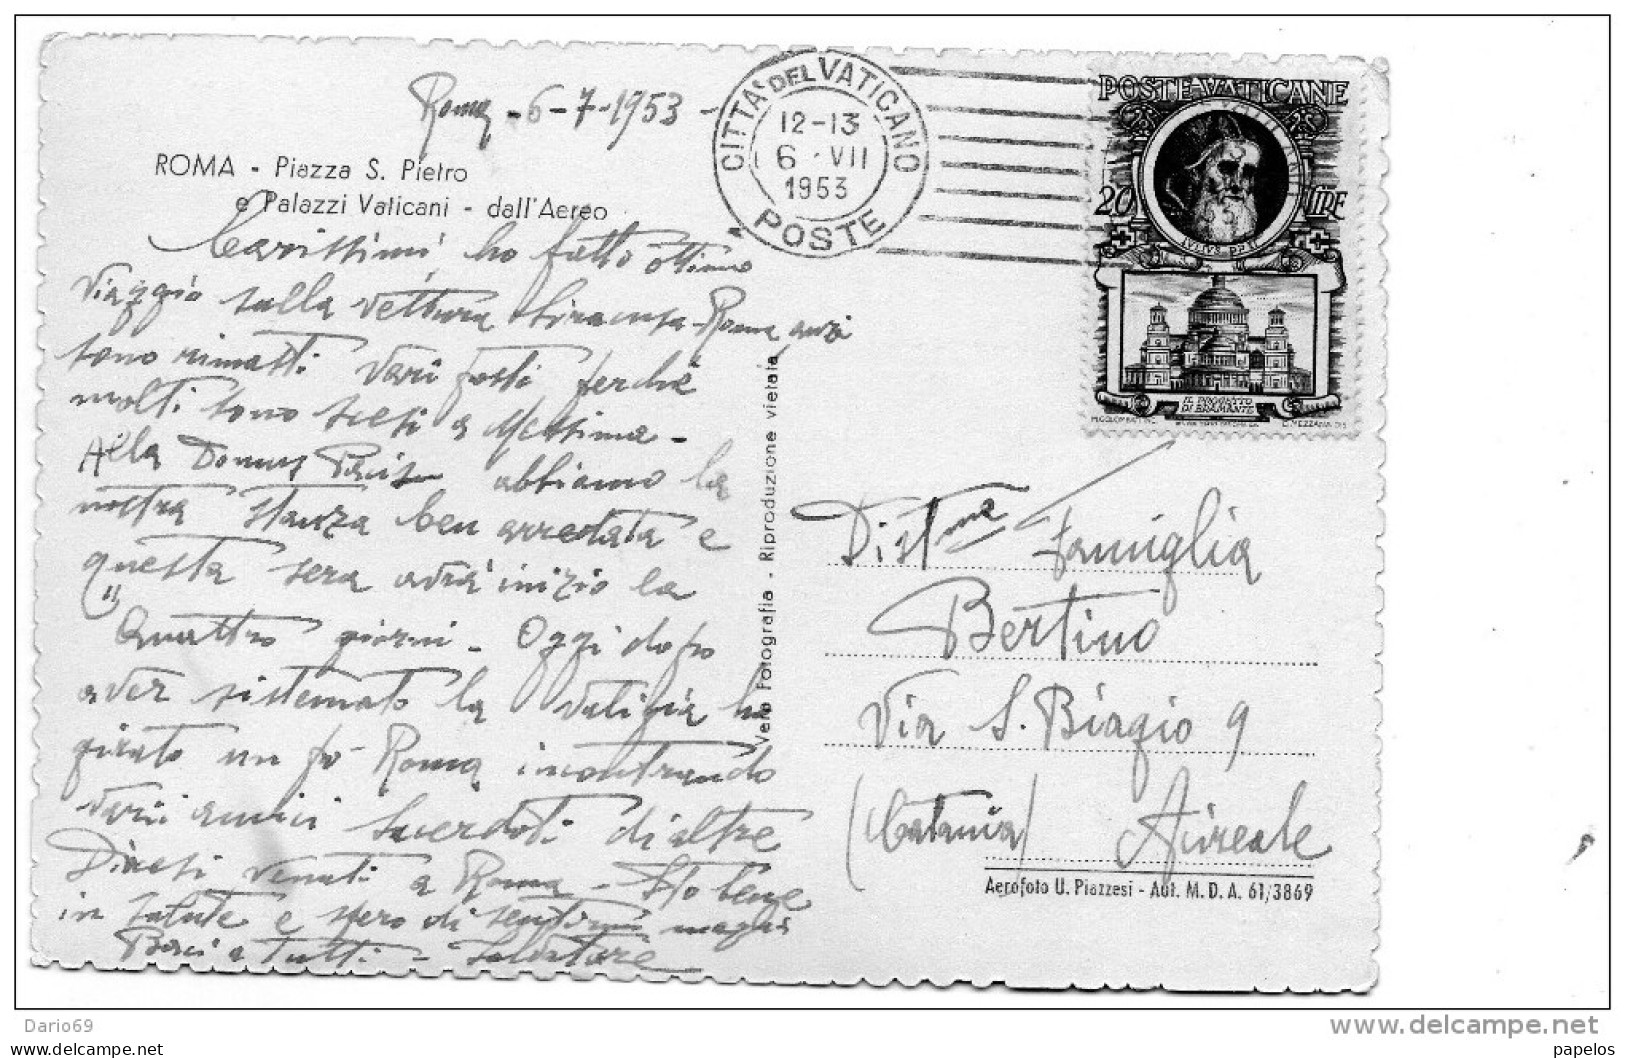 Roma - 6-7-1953 -
ROMA - Piazza S. Pietro
e Palazzi Vaticani - dall'Aereo
CITTA' DEL VATICANO
12-13
6 · VII
1953
POSTE
POSTE VATICANE
20 LIRE
IVLIVS
IL PROGETTO
DI BRAMANTE
Carissimi ho fatto ottimo
viaggio sulla vettura Siracusa-Roma anzi
sono rimasti vari posti perchè
molti sono scesi a Messina -
Alla Domus Pacis abbiamo la
nostra stanza ben arredata e
questa sera avrà inizio la
"Quattro giorni - Oggi dopo
aver sistemato la valigia ho
girato un pò Roma incontrando
varii amici Sacerdoti di altre
Diocesi venuti a Roma - Sto bene
in salute e spero di sentirmi
Baci a tutti - Salvatore
Vera Fotografia - Riproduzione vietata
Dist.ma Famiglia
Bertino
Via S. Biagio 9
(Catania) Acireale
Aerofoto U. Piazzesi - Aut. M. D. A. 61/3869
Dario69
www.delcampe.net
papelos